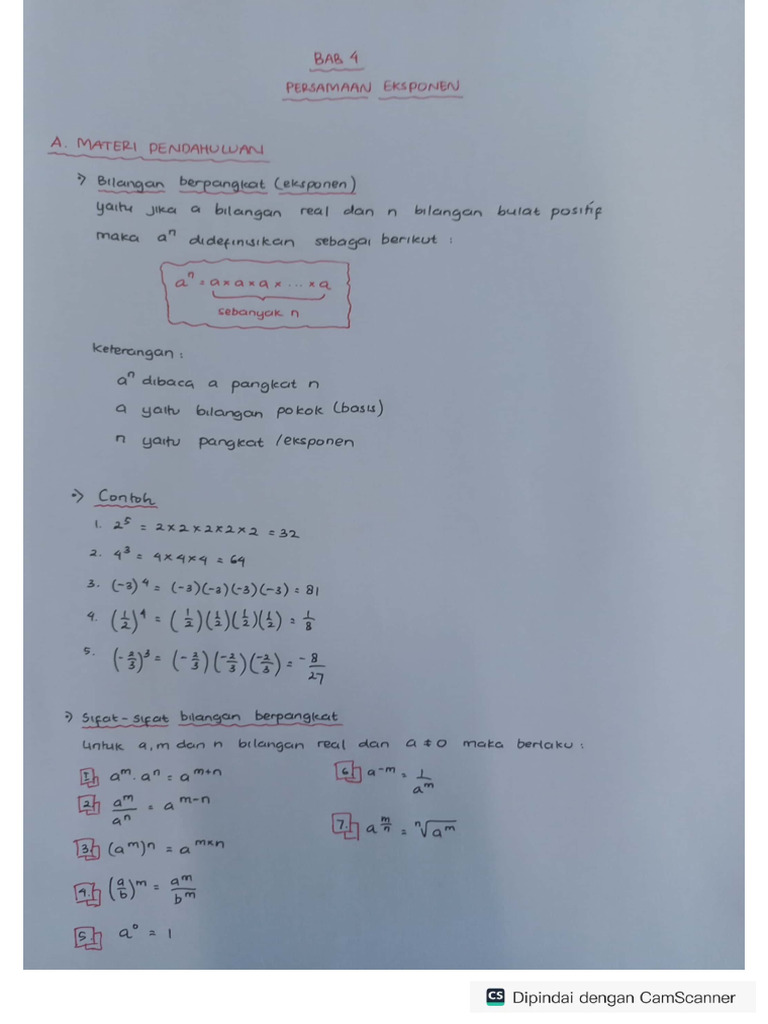 BAB 4
PERSAMAAN EKSPONEN
A. MATERI PENDAHULUAN
=> Bilangan berpangkat (eksponen)
yaitu jika a bilangan real dan n bilangan bulat positif
maka aⁿ didefinisikan sebagai berikut :
aⁿ = a × a × a × ... × a
sebanyak n
Keterangan :
aⁿ dibaca a pangkat n
a yaitu bilangan pokok (basis)
n yaitu pangkat /eksponen
=> Contoh
1. 2⁵ = 2 × 2 × 2 × 2 × 2 = 32
2. 4³ = 4 × 4 × 4 = 64
3. (-3)⁴ = (-3)(-3)(-3)(-3) = 81
4. (1/2)⁴ = (1/2)(1/2)(1/2)(1/2) = 1/8
5. (-2/3)³ = (-2/3)(-2/3)(-2/3) = -8/27
=> Sifat - Sifat bilangan berpangkat
Untuk a, m dan n bilangan real dan a ≠ 0 maka berlaku :
1. aᵐ . aⁿ = aᵐ⁺ⁿ
2. aᵐ/aⁿ = aᵐ⁻ⁿ
3. (aᵐ)ⁿ = aᵐˣⁿ
4. (a/b)ᵐ = aᵐ/bᵐ
5. a⁰ = 1
6. a⁻ᵐ = 1/aᵐ
7. a^(m/n) = ⁿ√aᵐ
CS Dipindai dengan CamScanner